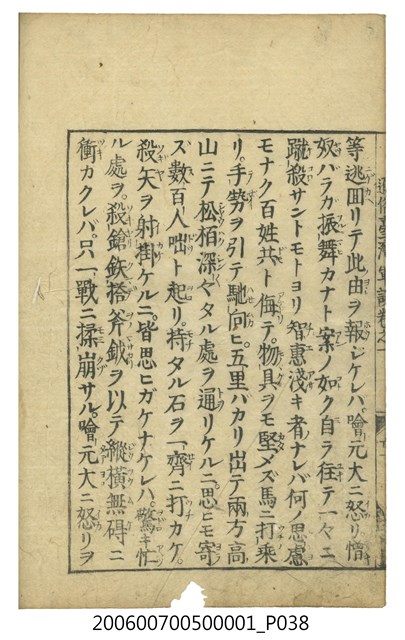 等逃回リテ此由ヲ報ジケレハ噲元大ニ怒リ憎
奴ハラカ振舞カナト案ノ如ク自ラ往テ一々ニ
蹴殺サントモトヨリ智惠淺キ者ナレバ何ノ思慮
モナク百姓共ト侮テ物具ヲモ堅メズ馬ニ打乗
リ手勢ヲ引テ馳向ヒ五里バカリ出テ兩方高
山ニテ松栢深々タル處ヲ通リケルニ思ヒモ寄
ズ數百人咄ト起リ持タル石ヲ一齊ニ打カケ
殺矢ヲ射掛ケルニ皆思ヒガケナケレハ驚キ忙
ル處ヲ殺鎗鉄搭斧鉞ヲ以テ縱横無碍ニ
衝カクレバ只一戰ニ揉崩サル噲元大ニ怒リヲ
200600700500001_P038